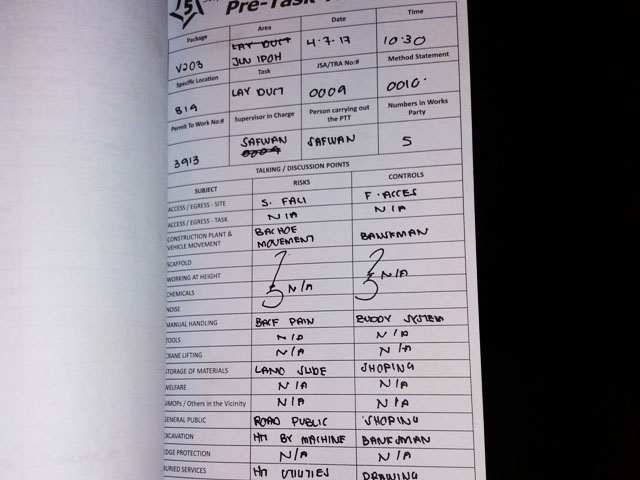 5
Pre-Task
Package Area Date Time
V203 LAY DUCT JLN IPOH 4.7.17 10:30
Specific Location Task JSA/TRA No:# Method Statement
819 LAY DUCT 0009 0010.
Permit To Work No:# Supervisor in Charge Person carrying out the PTT Numbers in Works Party
3913 SAFWAN SAFWAN 5
TALKING / DISCUSSION POINTS
SUBJECT RISKS CONTROLS
ACCESS / EGRESS - SITE S. FALL F. ACCES
ACCESS / EGRESS - TASK N/A N/A
CONSTRUCTION PLANT & VEHICLE MOVEMENT BACHOE MOVEMENT BANKMAN
SCAFFOLD
WORKING AT HEIGHT N/A
CHEMICALS N/A
NOISE
MANUAL HANDLING BACK PAIN BUDDY SYSTEM
TOOLS N/A N/A
CRANE LIFTING N/A N/A
STORAGE OF MATERIALS LAND SLIDE SHOPING
WELFARE N/A N/A
SIMOPs / Others in the Vicinity N/A N/A
GENERAL PUBLIC ROAD PUBLIC SHOPING
EXCAVATION HIT BY MACHINE BANKSMAN
EDGE PROTECTION N/A N/A
BURIED SERVICES HIT UTILITIES DRAWING